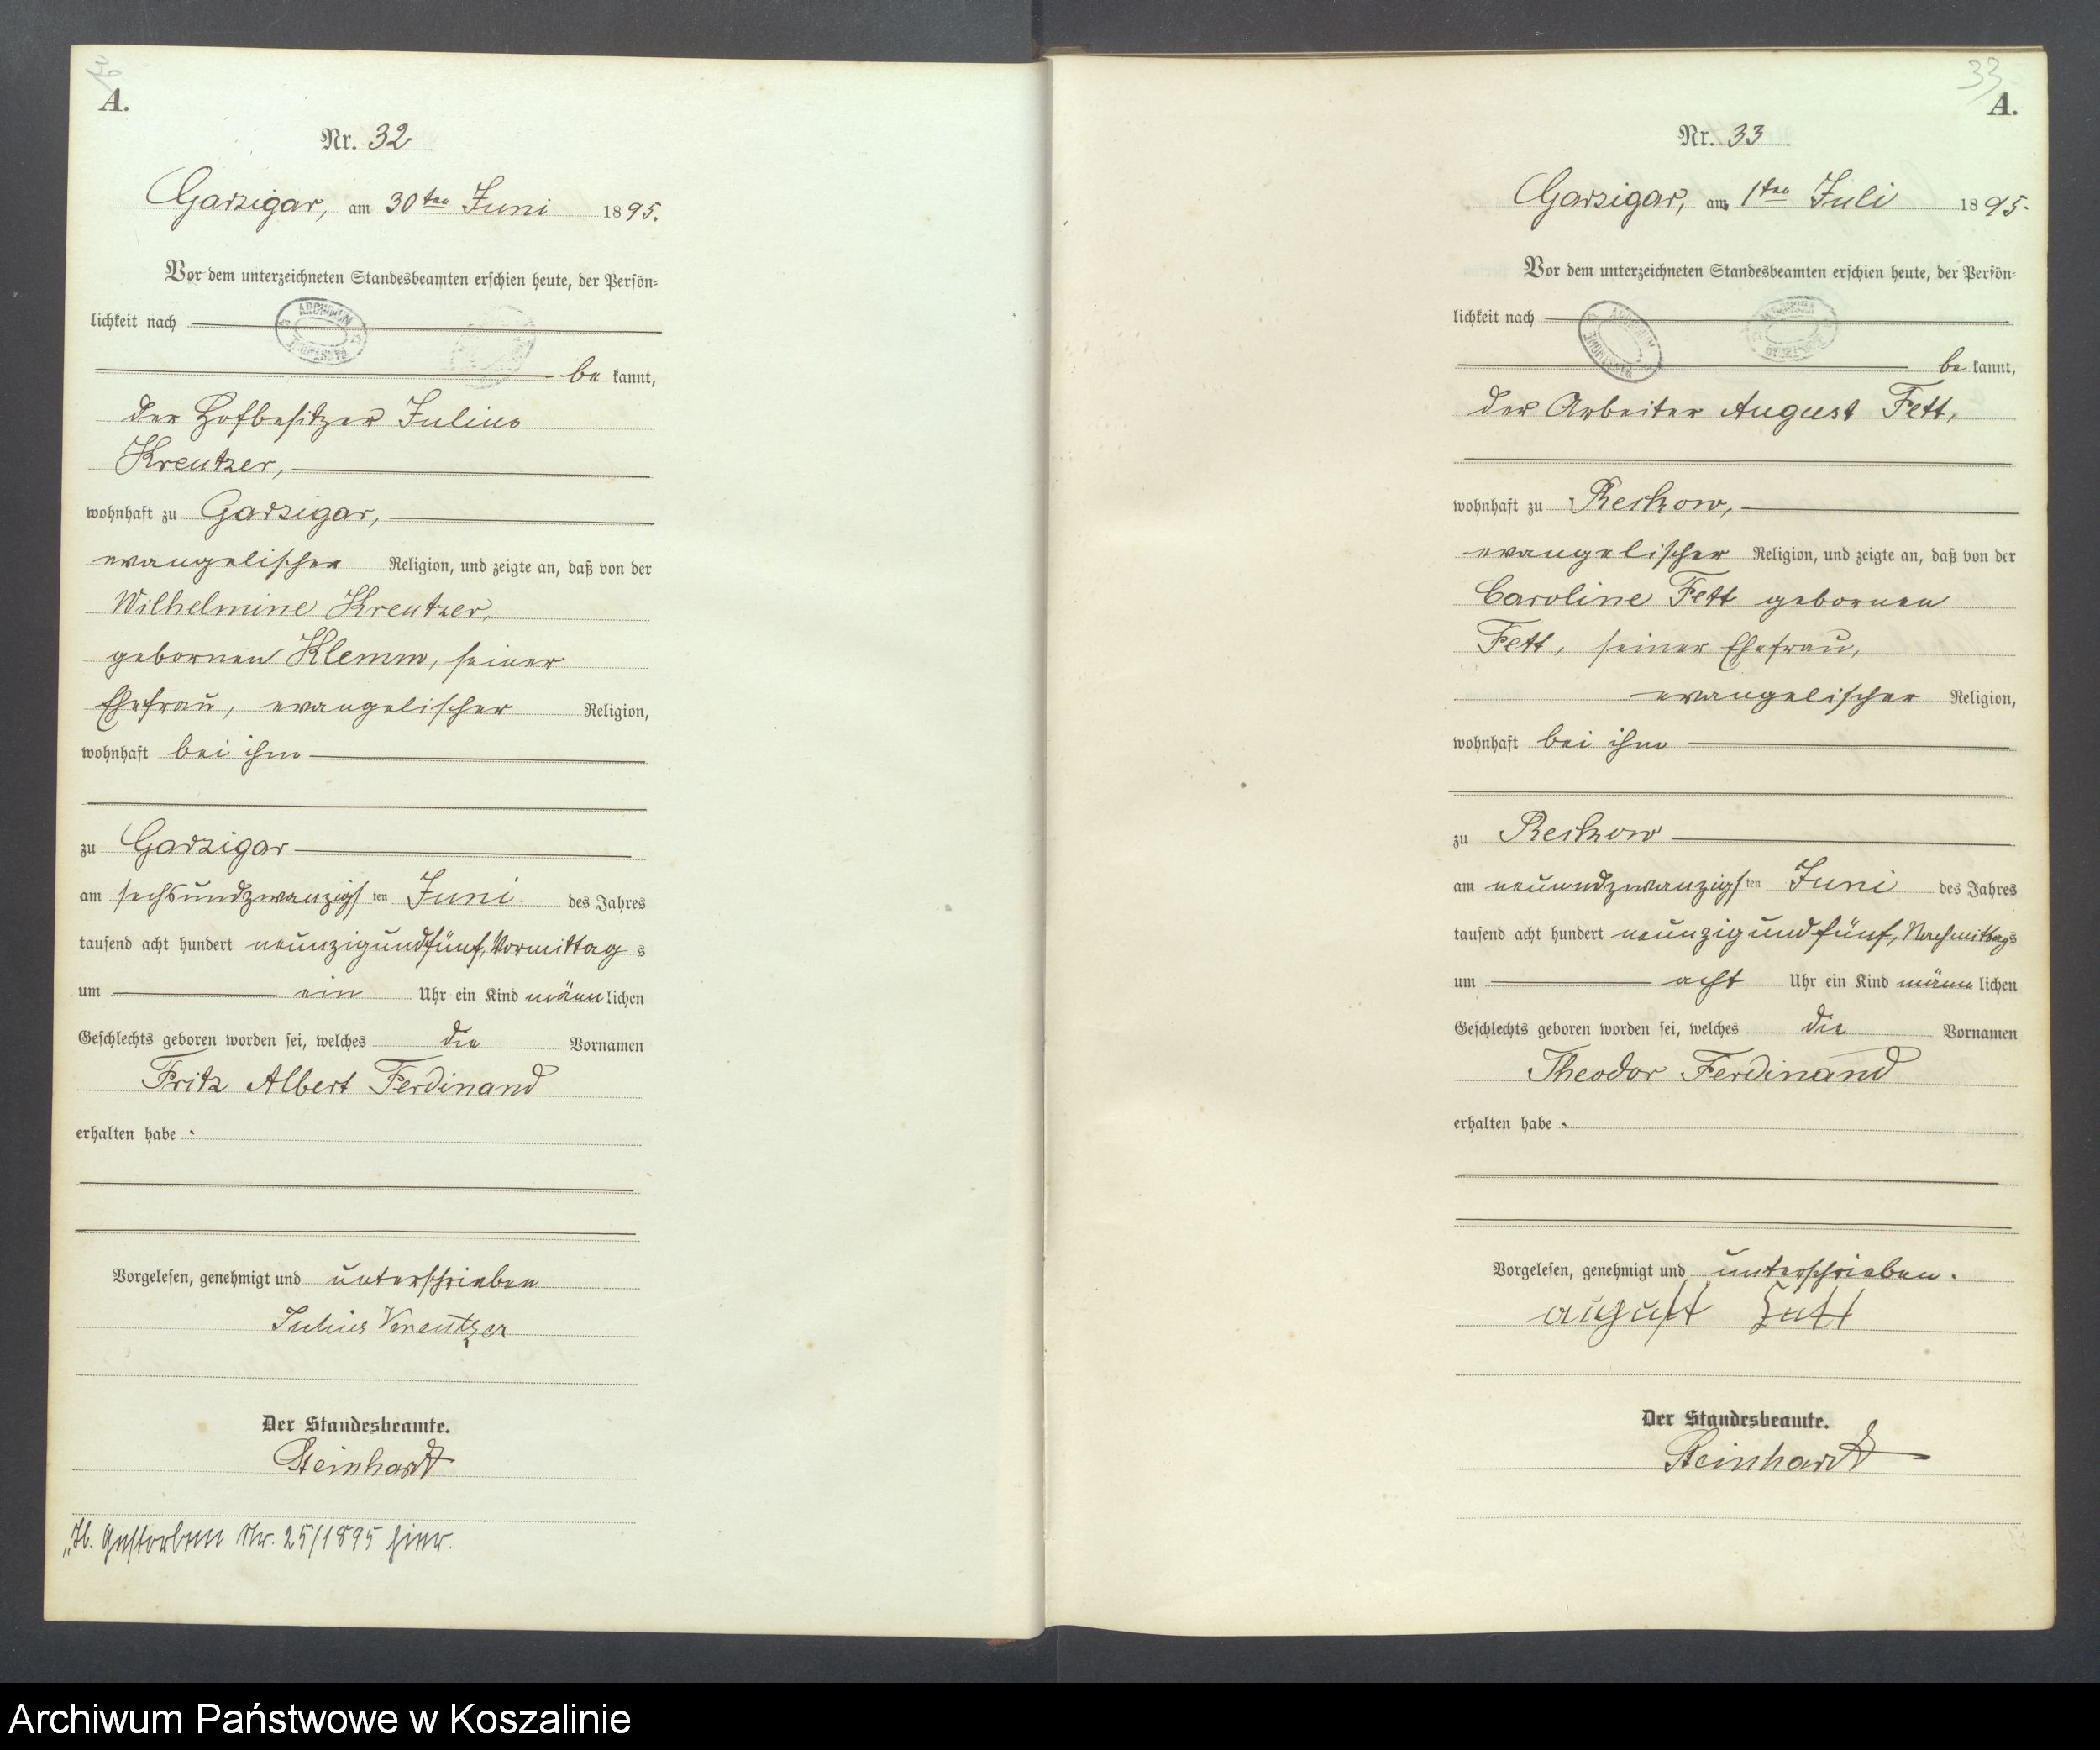 A.
Nr. 32
Garzigar, am 30ten Juni 1895.
Vor dem unterzeichneten Standesbeamten erschien heute, der Persön-
lichkeit nach
be kannt,
der Hofbesitzer Julius
Kreutzer,
wohnhaft zu Garzigar,
evangelischer Religion, und zeigte an, daß von der
Wilhelmine Kreutzer,
gebornen Klemm, seiner
Ehefrau, evangelischer Religion,
wohnhaft bei ihm
zu Garzigar
am sechsundzwanzigsten Juni des Jahres
tausend acht hundert neunzigundfünf, Vormittag s
um ein Uhr ein Kind männlichen
Geschlechts geboren worden sei, welches die Vornamen
Fritz Albert Ferdinand
erhalten habe.
Vorgelesen, genehmigt und unterschrieben
Julius Kreutzer
Der Standesbeamte.
Steinhardt
Gestorben Nr. 25/1895 hier.
33
A.
Nr. 33
Garzigar, am 1ten Juli 1895.
Vor dem unterzeichneten Standesbeamten erschien heute, der Persön-
lichkeit nach
be kannt,
der Arbeiter August Fett,
wohnhaft zu Reckow,
evangelischer Religion, und zeigte an, daß von der
Caroline Fett gebornen
Fett, seiner Ehefrau,
evangelischer Religion,
wohnhaft bei ihm
zu Reckow
am neunundzwanzigsten Juni des Jahres
tausend acht hundert neunzigundfünf, Nachmittags
um acht Uhr ein Kind männlichen
Geschlechts geboren worden sei, welches die Vornamen
Theodor Ferdinand
erhalten habe.
Vorgelesen, genehmigt und unterschrieben.
August Fett
Der Standesbeamte.
Steinhardt
Archiwum Państwowe w Koszalinie